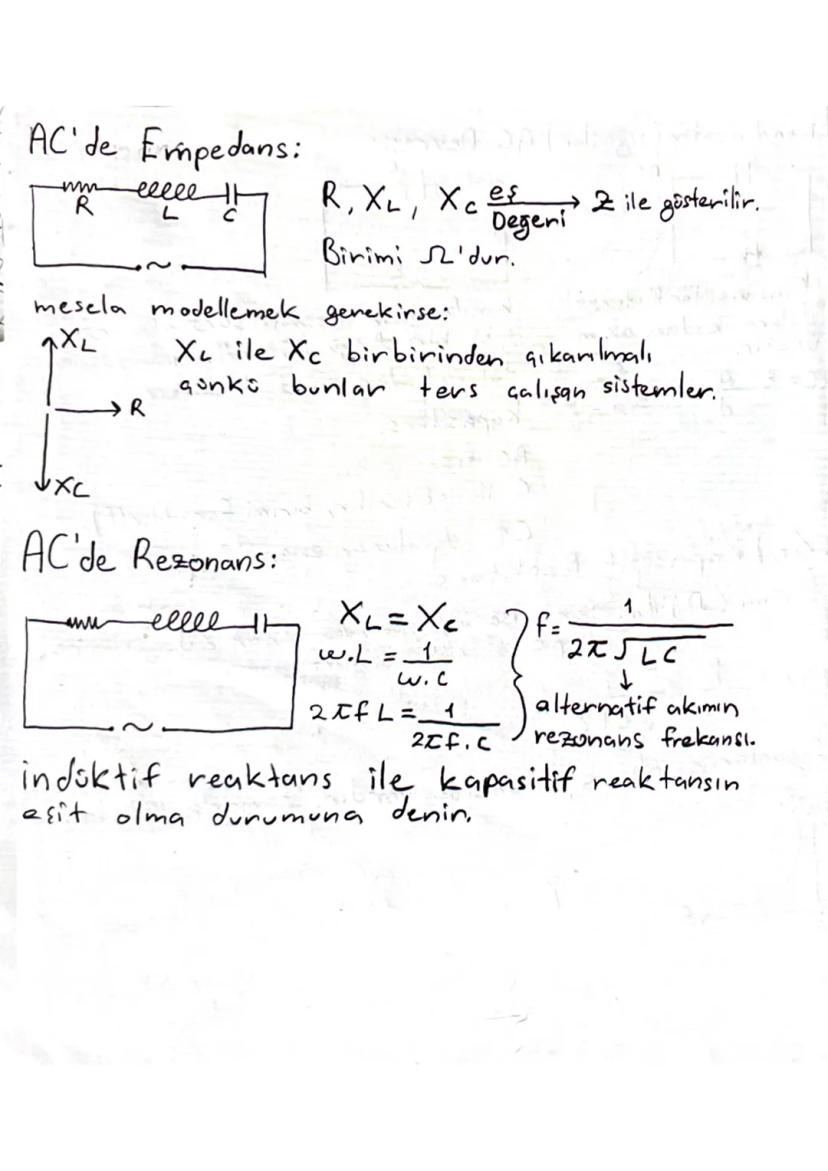 AC'de Empedans:
R L C
R, XL, XC eş Değeri → Z ile gösterilir.
Birimi Ω'dur.
mesela modellemek gerekirse:
XL
XL ile XC birbirinden çıkarılmalı
çünkü bunlar ters çalışan sistemler.
R
XC
AC'de Rezonans:
XL = XC
w.L = 1/w.C
2πf L = 1/2πf.C
f = 1/2π√LC
↓
alternatif akımın
rezonans frekansı.
indüktif reaktans ile kapasitif reaktansın
eşit olma durumuna denir.